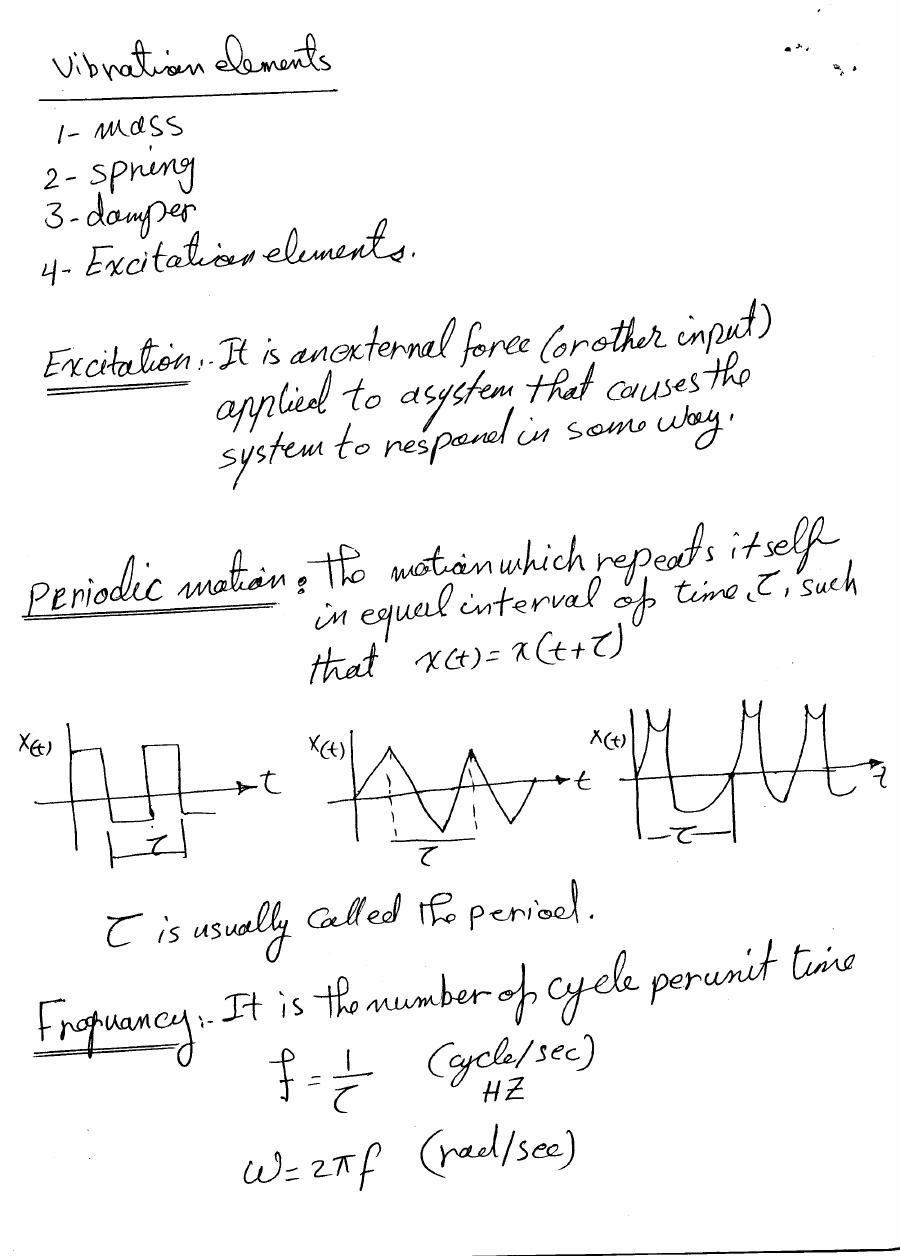 Vibration elements
1- mass
2- spring
3- damper
4- Excitation elements.
Excitation:- It is an external force (or other input)
applied to a system that causes the
system to respond in some way.
Periodic motion: The motion which repeats itself
in equal interval of time, τ, such
that x(t) = x(t+τ)
x(t) t τ
x(t) t τ
x(t) t τ
τ is usually called the period.
Frequancy:- It is the number of cycle per unit time
f = 1/τ (cycle/sec)
HZ
ω = 2πf (rad/sec)